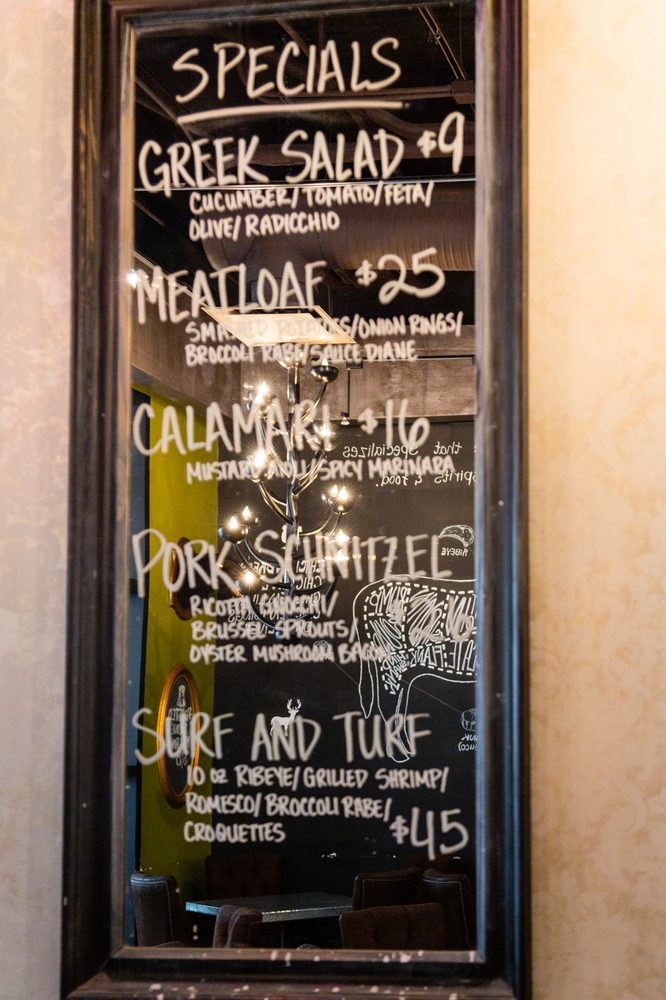 SPECIALS
GREEK SALAD $9
CUCUMBER/TOMATO/FETA/
OLIVE/RADICCHIO
MEATLOAF $25
SMASHED POTATOES/ONION RINGS/
BROCCOLI RABE/SAUCE DIANE
CALAMARI $16
MUSTARD AIOLI/SPICY MARINARA
that Specializes
spirits & food.
PORK SCHNITZEL
RIBEYE
RICOTTA GNOCCHI/
BRUSSEL SPROUTS/ 26
OYSTER MUSHROOM BACON
SURF AND TURF
10 OZ RIBEYE/GRILLED SHRIMP/
ROMESCO/BROCCOLI RABE/
CROQUETTES $45